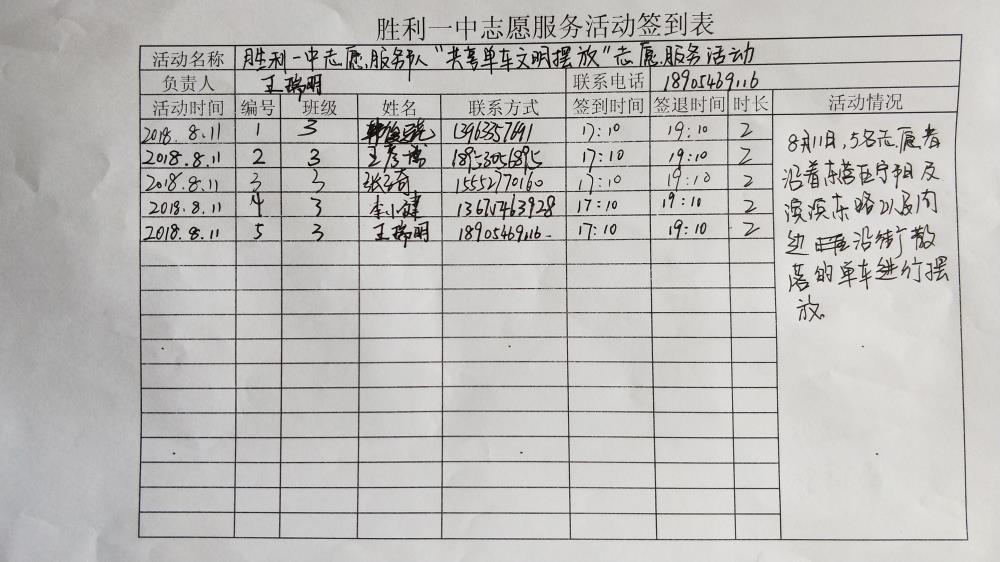 胜利一中志愿服务活动签到表
活动名称 胜利一中志愿服务队"共享单车文明摆放"志愿服务活动
负责人 王瑞明 联系电话 18905469116
活动时间 编号 班级 姓名 联系方式 签到时间 签退时间 时长 活动情况
2018.8.11 1 3 13963357691 17:10 19:10 2
2018.8.11 2 3 王彦博 18953056895 17:10 19:10 2
2018.8.11 3 3 15552770160 17:10 19:10 2
2018.8.11 4 3 李小健 17:10 19:10 2
2018.8.11 5 3 王瑞明 18905469116 17:10 19:10 2
8月11日,5名志愿者
沿着东营区宁阳及
滨东路以及周
边沿街散
落的单车进行摆
放.